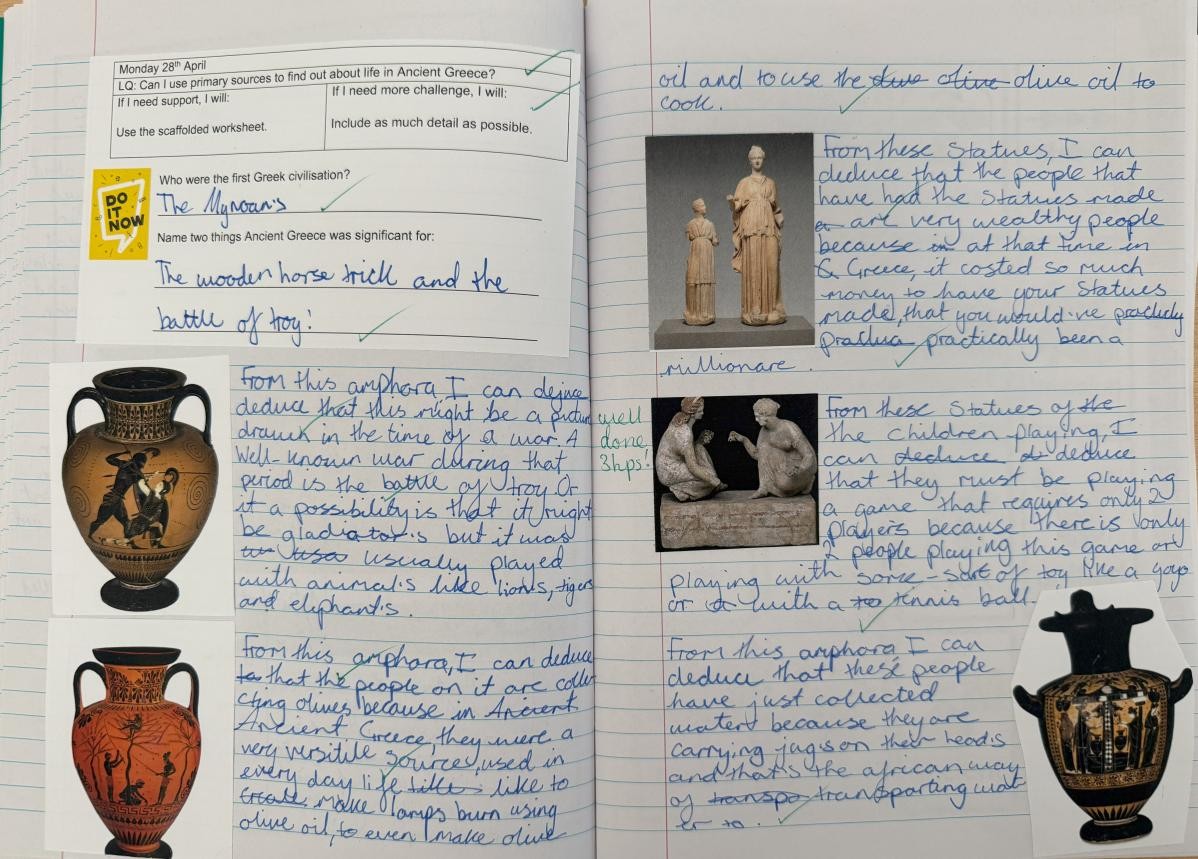 Monday 28th April
LQ: Can I use primary sources to find out about life in Ancient Greece?
If I need support, I will:
If I need more challenge, I will:
Use the scaffolded worksheet.
Include as much detail as possible.
DO IT NOW
Who were the first Greek civilisation?
The Mynoan's
Name two things Ancient Greece was significant for:
The wooden horse trick and the
battle of troy!
From this amphora, I can dejuce
deduce that this might be a picture
drawn in the time of a war. A
well-known war during that
period is the battle of troy. Or
it a possibility is that it might
be gladiator's but it was
usually played
with animal's like lion's, tigers
and elephant's.
From this amphora, I can deduce
to that the people on it are colle
cting olives because in Ancient
Ancient Greece, they were a
very versitile source, used in
every day life like to
create make lamps burn using
olive oil, to even make olive
oil and to use the olive olive oil to
cook.
From these statues, I can
deduce that the people that
have had the statues made
are very wealthy people
because in at that time in
Greece, it costed so much
money to have your statues
made, that you would've
practically been a
millionare.
From these statues of the
the children playing, I
can deduce deduce
that they must be playing
a game that requires only 2
players because there is only
2 people playing this game or
playing with some-sort of toy like a yoyo
or with a to tennis ball.
well
done
3hps!
From this amphora I can
deduce that these people
have just collected
water because they are
carrying jugs on their head's
and that's the african way
of transpo transporting wat
er to.